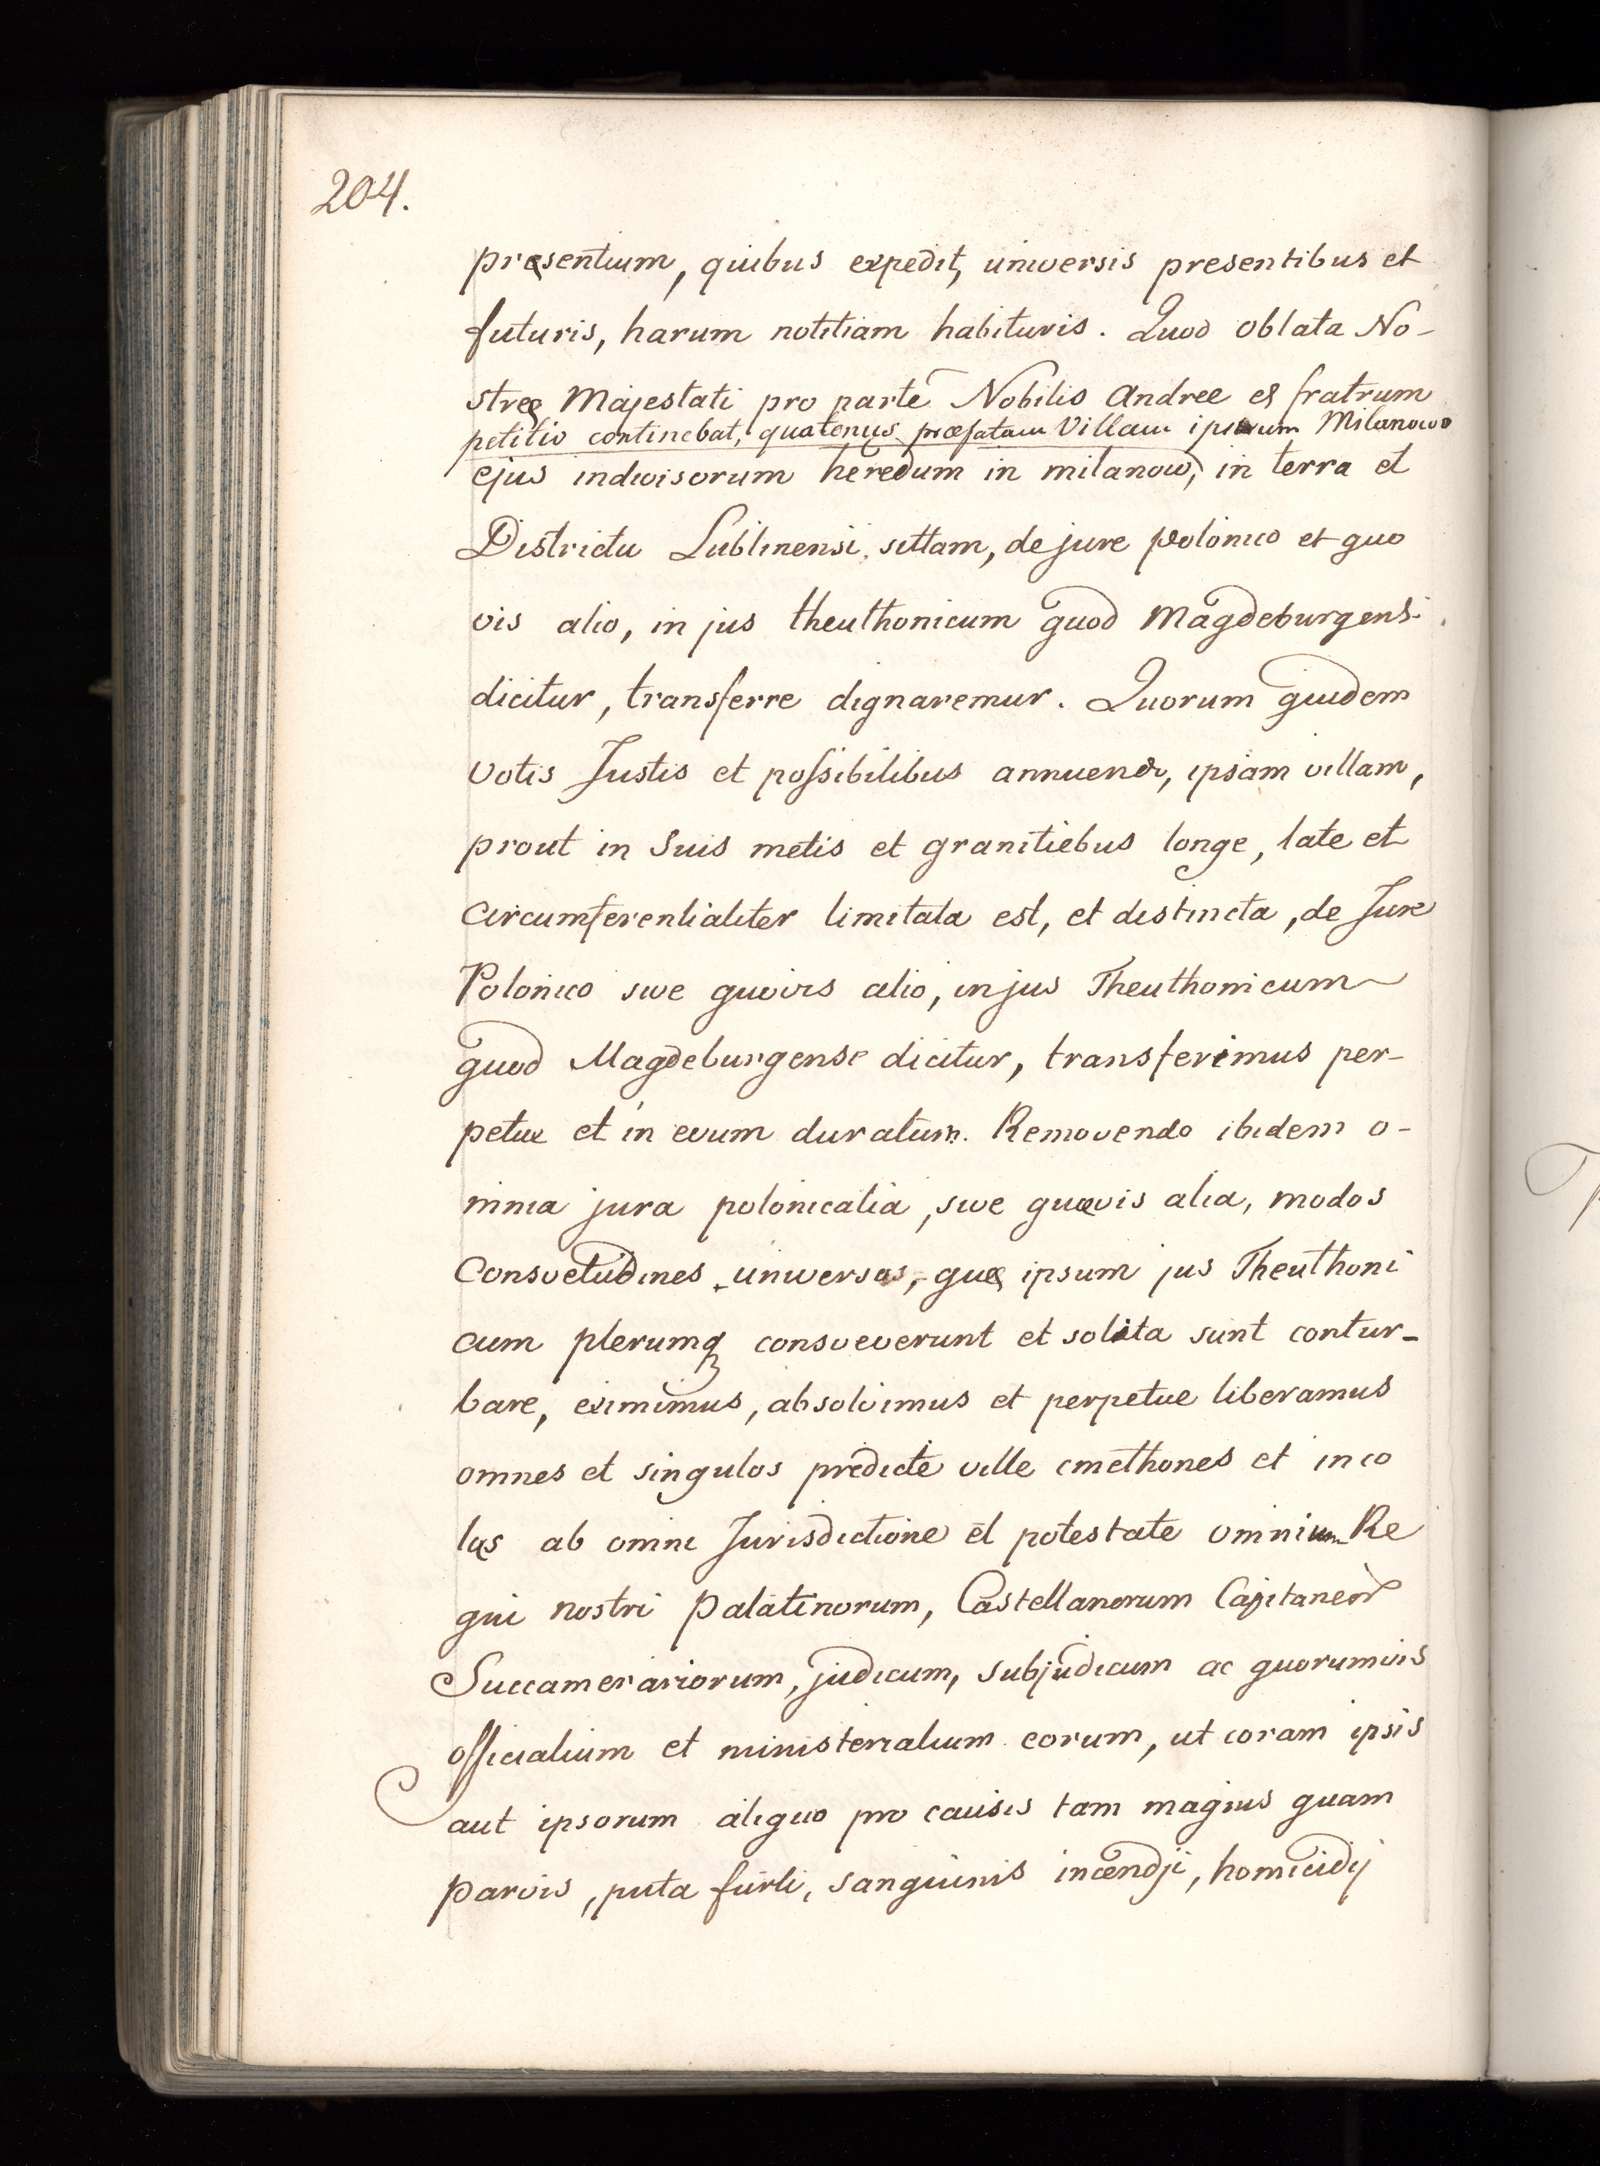 204.
pręsentium, quibus expedit, universis presentibus et
futuris, harum notitiam habituris. Quod oblata No-
stre Majestati pro parte Nobilis Andree et fratrum
petitio continebat, quatenus præfatam Villam ipsorum Milanowo
ejus indivisorum heredum in milanow, in terra et
Districtu Lublinensi sittam, de jure polonico et quo
vis alio, in jus theuthonicum quod Magdeburgensi
dicitur, transferre dignaremur. Quorum quidem
votis Justis et possibilibus annuendo, ipsam villam,
prout in suis metis et granitiebus longe, late et
circumferentialiter limitata est, et distincta, de Jure
Polonico sive quovis alio, in jus Theuthonicum
quod Magdeburgense dicitur, transferimus per-
petue et in evum duratum. Removendo ibidem o-
mnia jura polonicalia, sive quævis alia, modos
Consvetudines universas, quę ipsum jus Theuthoni
cum plerumq consveverunt et solita sunt contur-
bare, eximimus, absolvimus et perpetue liberamus
omnes et singulos predicte ville cmethones et inco
las ab omni Jurisdictione et potestate omnium Re
gni nostri Palatinorum, Castellanorum Capitaneor
Succamerariorum, judicum, subjudicum ac quorumvis
officialium et ministerialium eorum, ut coram ipsis
aut ipsorum aliquo pro causis tam magnis quam
parvis, puta furti, sanguinis incendji, homicidij